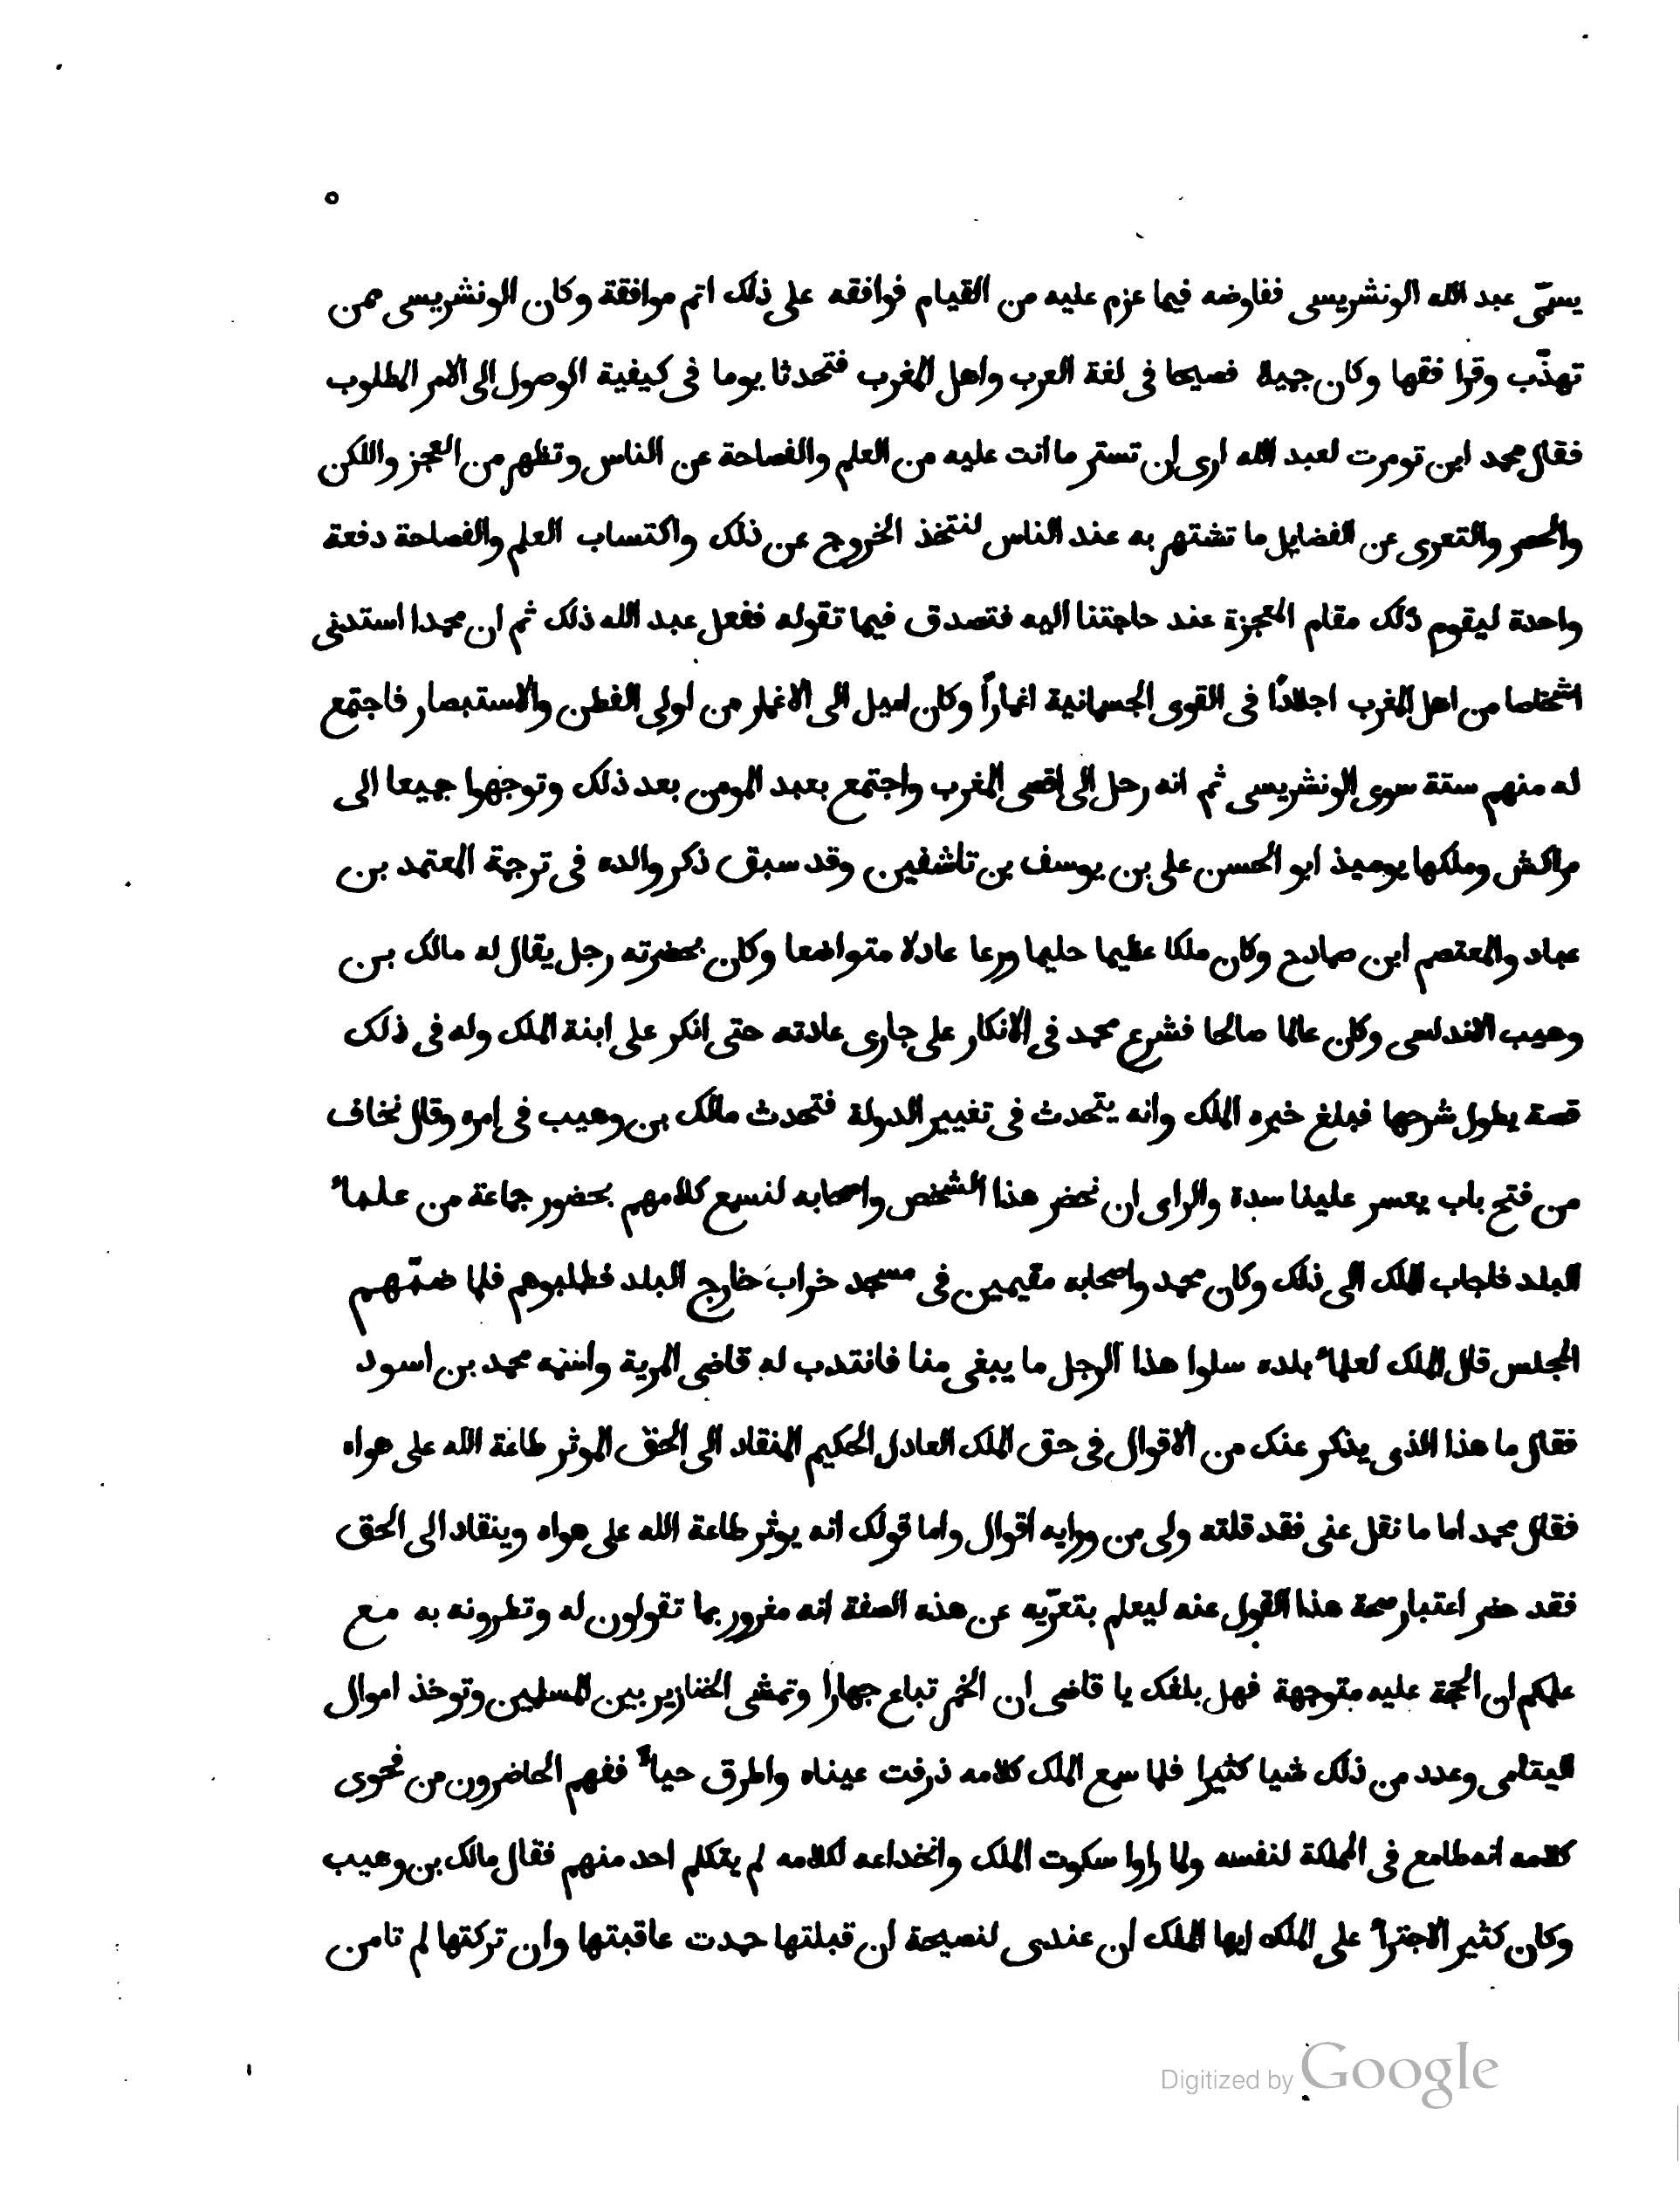 ٥
يسمّى عبد الله الونشريسى ففاوضه فيما عزم عليه من القيام فوافقه على ذلك اتم موافقة وكان الونشريسى ممن
تهذّب وقرا فقها وكان جميلا فصيحا فى لغة العرب واهل المغرب فتحدثا يوما فى كيفية الوصول الى الامر المطلوب
فقال محمد ابن تومرت لعبد الله ارى ان تستر ما انت عليه من العلم والفصاحة عن الناس وتظهر من العجز واللكن
والحصر والتعرى عن الفضايل ما تشتهر به عند الناس لنتخذ الخروج عن ذلك واكتساب العلم والفصاحة دفعة
واحدة ليقوم ذلك مقام المعجزة عند حاجتنا اليه فتصدق فيما تقوله ففعل عبد الله ذلك ثم ان محمدا استدنى
اشخاصا من اهل المغرب اجلادًا فى القوى الجسمانية اغمارًا وكان اميل الى الاغمار من اولى الفطن والاستبصار فاجتمع
له منهم ستة سوى الونشريسى ثم انه رحل الى اقصى المغرب واجتمع بعبد المومن بعد ذلك وتوجهوا جميعا الى
مراكش وملكها يوميذ ابو الحسن على بن يوسف بن تاشفين وقد سبق ذكر والده فى ترجمة المعتمد بن
عباد والمعتصم ابن صمادح وكان ملكا عظيما حليما ورعا عادلا متواضعا وكان بحضرته رجل يقال له مالك بن
وهيب الاندلسى وكان عالما صالحا فشرع محمد فى الانكار على جارى عادته حتى انكر على ابنة الملك وله فى ذلك
قصة يطول شرحها فبلغ خبره الملك وانه يتحدث فى تغيير الدولة فتحدث مالك بن وهيب فى امره وقال نخاف
من فتح باب يعسر علينا سدة والراى ان نحضر هذا الشخص واصحابه لنسمع كلامهم بحضور جماعة من علماء
البلد فاجاب الملك الى ذلك وكان محمد واصحابه مقيمين فى مسجد خراب خارج البلد فطلبوهم فلما ضمّهم
المجلس قال الملك لعلماء بلده سلوا هذا الرجل ما يبغى منا فانتدب له قاضى المرية واسمه محمد بن اسود
فقال ما هذا الذى يذكر عنك من الاقوال فى حق الملك العادل الحكيم المنقاد الى الحق الموثر طاعة الله على هواه
فقال محمد اما ما نقل عنى فقد قلته ولى من ورايه اقوال واما قولك انه يوثر طاعة الله على هواه وينقاد الى الحق
فقد حضر اعتبار صحة هذا القول عنه ليعلم بتعرّيه عن هذه الصفة انه مغرور بما تقولون له وتطرونه به مع
علمكم ان الحجة عليه متوجهة فهل بلغك يا قاضى ان الخمر تباع جهارًا وتمشى الخنازير بين المسلمين وتوخذ اموال
اليتامى وعدد من ذلك شيا كثيرا فلما سمع الملك كلامه ذرفت عيناه واطرق حياءً ففهم الحاضرون من فحوى
كلامه انه طامع فى المملكة لنفسه ولما راوا سكوت الملك وانخداعه لكلامه لم يتكلم احد منهم فقال مالك بن وهيب
وكان كثير الاجتراء على الملك ايها الملك ان عندى لنصيحة ان قبلتها حمدت عاقبتها وان تركتها لم تامن
Digitized by Google